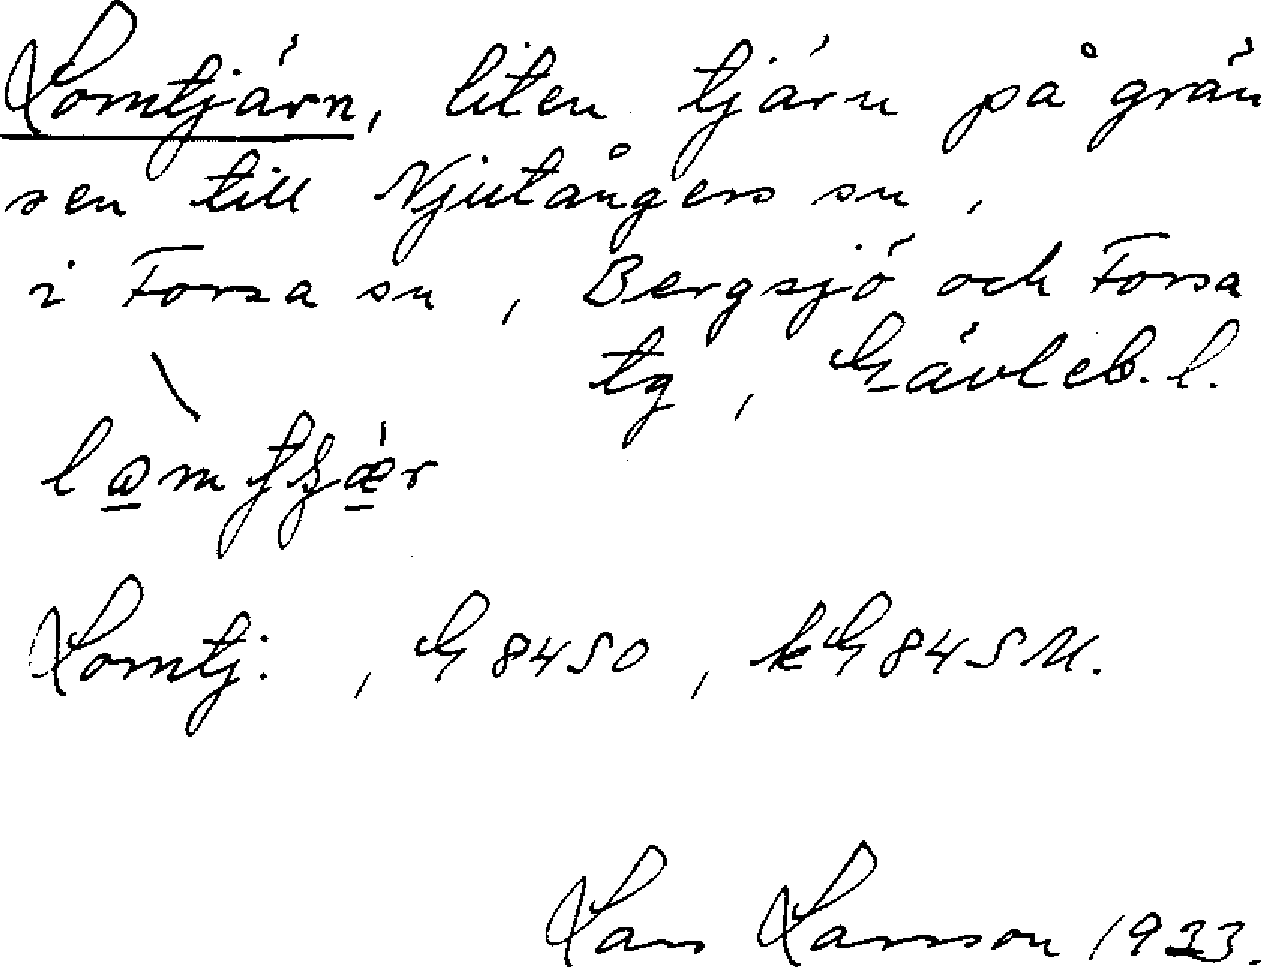 Lomtjärn, liten tjärn på grän
sen till Njutångers sn,
i Forsa sn, Bergsjö och Forsa
tg, Gävleb. l.
Lomtj., G 84 SO, kG 84 SU.
Lars Larsson 1933.